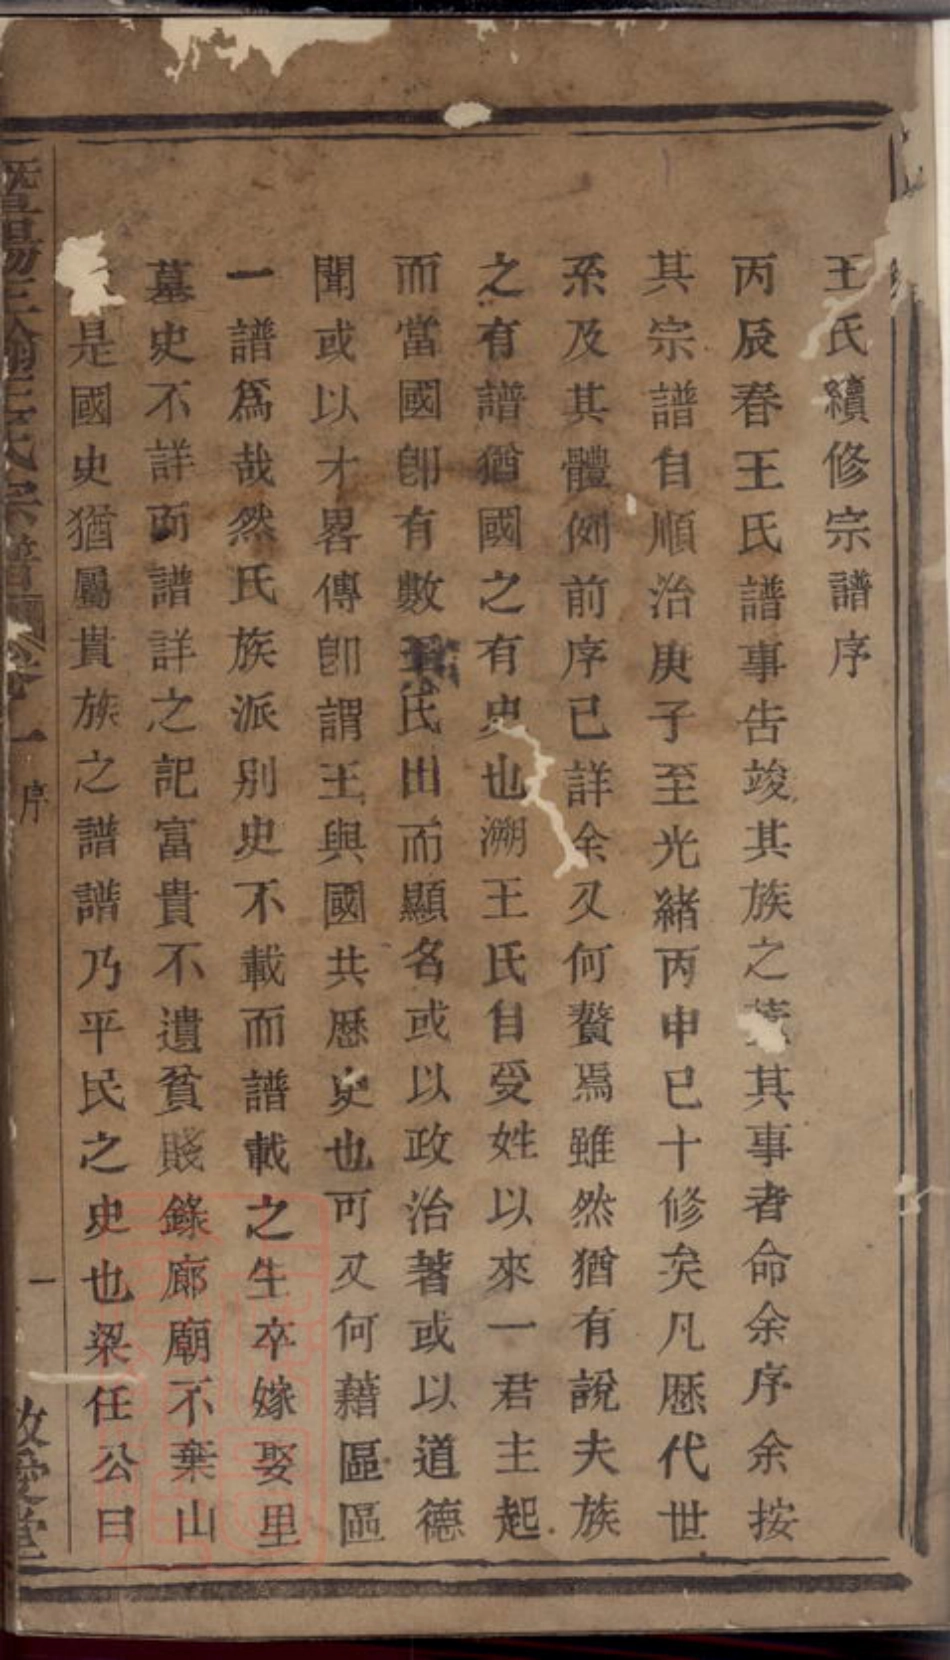 王氏續修宗譜序
丙辰春王氏譜事告竣其族之董其事者命余序余按
其宗譜自順治庚子至光緒丙申已十修矣凡歷代世
系及其體例前序已詳余又何贅焉雖然猶有說夫族
之有譜猶國之有史也溯王氏自受姓以來一君主起
而當國卽有數氏出而顯名或以政治著或以道德
聞或以才畧傳卽謂王與國共歷史也可又何藉區區
一譜爲哉然氏族派别史不載而譜載之生卒嫁娶里
墓史不詳而譜詳之記富貴不遺貧賤錄廊廟不棄山
是國史猶屬貴族之譜譜乃平民之史也梁任公曰
暨陽王氏宗譜卷一
序
一
敬愛堂